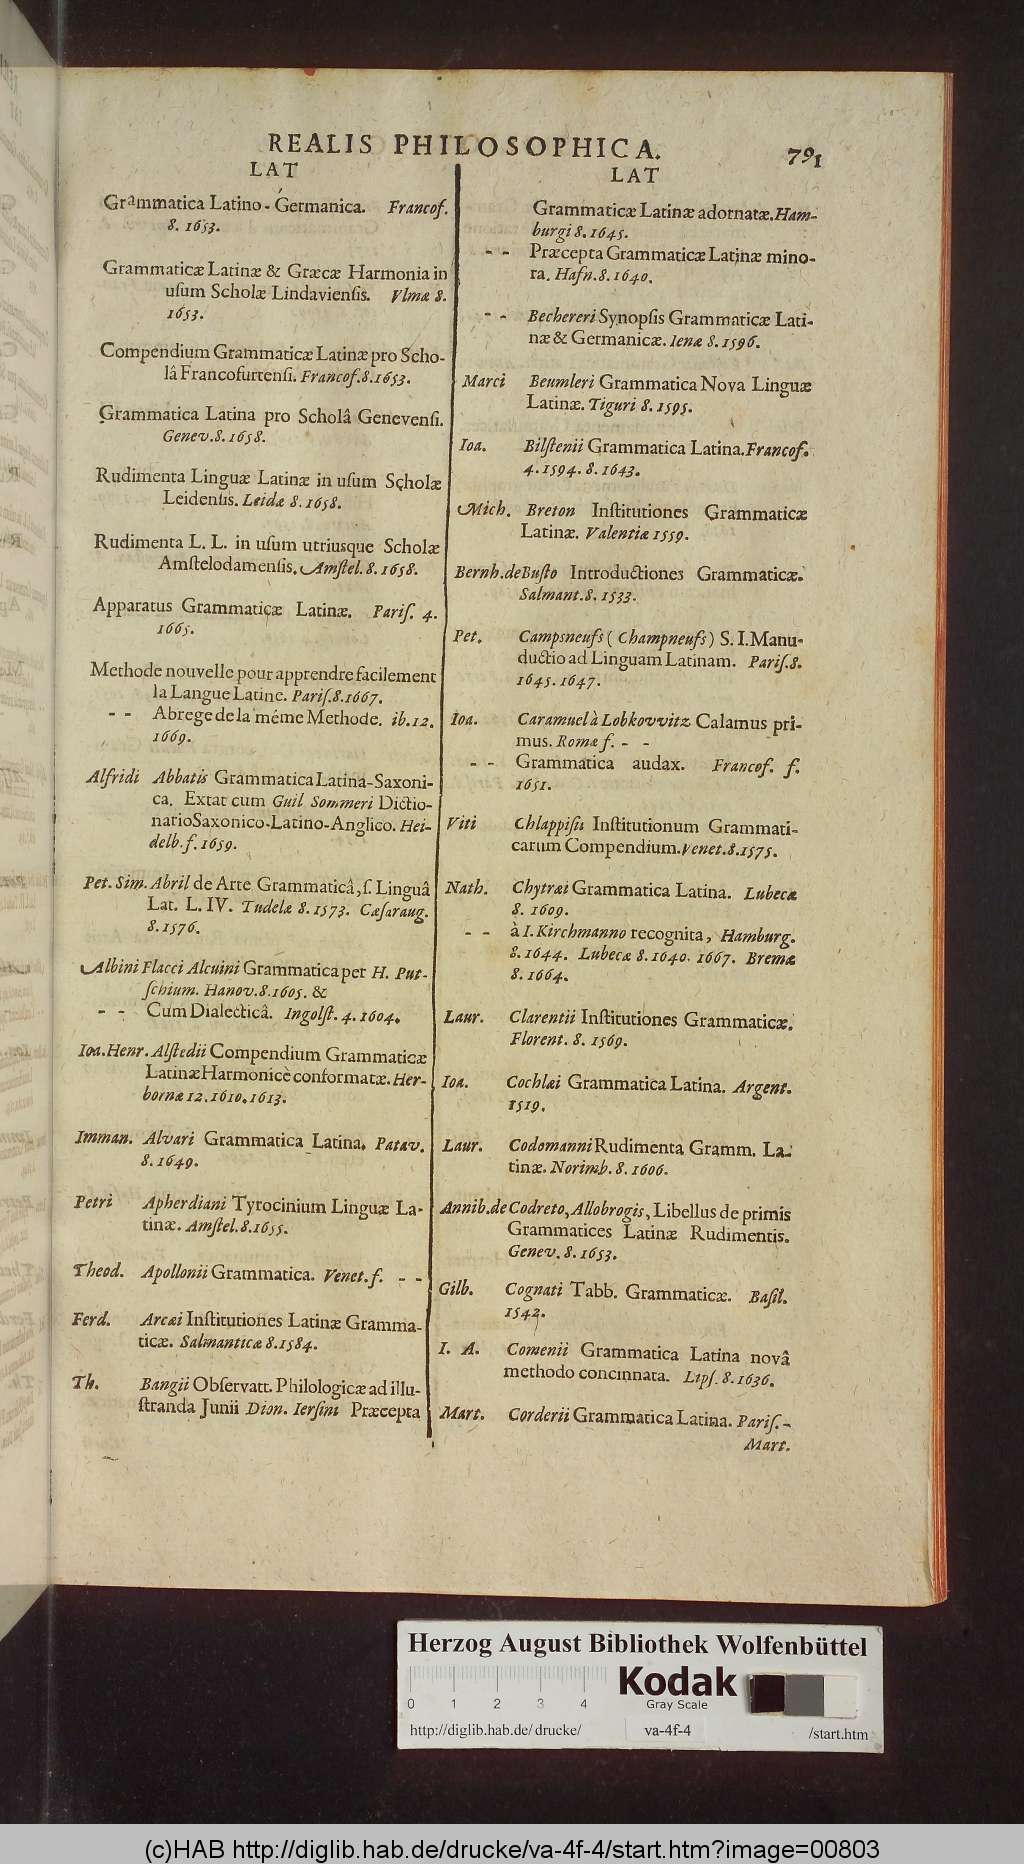 REALIS PHILOSOPHICA.
791
LAT
Grammatica Latino-Germanica. Francof.
8. 1653.
Grammaticæ Latinæ & Græcæ Harmonia in
usum Scholæ Lindaviensis. Vlmæ 8.
1653.
Compendium Grammaticæ Latinæ pro Scho-
lâ Francofurtensi. Francof. 8. 1653.
Grammatica Latina pro Scholâ Genevensi.
Genev. 8. 1658.
Rudimenta Linguæ Latinæ in usum Scholæ
Leidensis. Leidæ 8. 1658.
Rudimenta L. L. in usum utriusque Scholæ
Amstelodamensis. Amstel. 8. 1658.
Apparatus Grammaticæ Latinæ. Paris. 4.
1665.
Methode nouvelle pour apprendre facilement
la Langue Latine. Paris. 8. 1667.
- - Abrege de la méme Methode. ib. 12.
1669.
Alfridi Abbatis Grammatica Latina-Saxoni-
ca. Extat cum Guil Sommeri Dictio-
nario Saxonico-Latino-Anglico. Hei-
delb. f. 1659.
Pet. Sim. Abril de Arte Grammaticâ, s. Linguâ
Lat. L. IV. Tudelæ 8. 1573. Cæsaraug.
8. 1576.
Albini Flacci Alcuini Grammatica per H. Put-
schium. Hanov. 8. 1605. &
- - Cum Dialecticâ. Ingolst. 4. 1604.
Ioa. Henr. Alstedii Compendium Grammaticæ
Latinæ Harmonicè conformatæ. Her-
bornæ 12. 1610. 1613.
Imman. Alvari Grammatica Latina. Patav.
8. 1649.
Petri Apherdiani Tyrocinium Linguæ La-
tinæ. Amstel. 8. 1655.
Theod. Apollonii Grammatica. Venet. f. - -
Ferd. Arcæi Institutiones Latinæ Gramma-
ticæ. Salmanticæ 8. 1584.
Th. Bangii Observatt. Philologicæ ad illu-
stranda Junii Dion. Iersini Præcepta
LAT
Grammaticæ Latinæ adornatæ. Ham-
burgi 8. 1645.
- - Præcepta Grammaticæ Latinæ mino-
ra. Hafn. 8. 1640.
- - Bechereri Synopsis Grammaticæ Lati-
næ & Germanicæ. Ienæ 8. 1596.
Marci Beumleri Grammatica Nova Linguæ
Latinæ. Tiguri 8. 1595.
Ioa. Bilstenii Grammatica Latina. Francof.
4. 1594. 8. 1643.
Mich. Breton Institutiones Grammaticæ
Latinæ. Valentiæ 1559.
Bernh. de Busto Introductiones Grammaticæ.
Salmant. 8. 1533.
Pet. Campsneufs (Champneufs) S. I. Manu-
ductio ad Linguam Latinam. Paris. 8.
1645. 1647.
Ioa. Caramuel à Lobkovvitz Calamus pri-
mus. Romæ f. - -
- - Grammatica audax. Francof. f.
1651.
Viti Chlappisii Institutionum Grammati-
carum Compendium. Venet. 8. 1575.
Nath. Chytræi Grammatica Latina. Lubecæ
8. 1609.
- - à I. Kirchmanno recognita, Hamburg.
8. 1644. Lubecæ 8. 1640. 1667. Bremæ
8. 1664.
Laur. Clarentii Institutiones Grammaticæ.
Florent. 8. 1569.
Ioa. Cochlæi Grammatica Latina. Argent.
1519.
Laur. Codomanni Rudimenta Gramm. La-
tinæ. Norimb. 8. 1606.
Annib. de Codreto, Allobrogis, Libellus de primis
Grammatices Latinæ Rudimentis.
Genev. 8. 1653.
Gilb. Cognati Tabb. Grammaticæ. Basil.
1542.
I. A. Comenii Grammatica Latina novâ
methodo concinnata. Lips. 8. 1636.
Mart. Corderii Grammatica Latina. Paris. -
Mart.
Herzog August Bibliothek Wolfenbüttel
Kodak
Gray Scale
0 1 2 3 4
http://diglib.hab.de/drucke/ va-4f-4 /start.htm
(c)HAB http://diglib.hab.de/drucke/va-4f-4/start.htm?image=00803